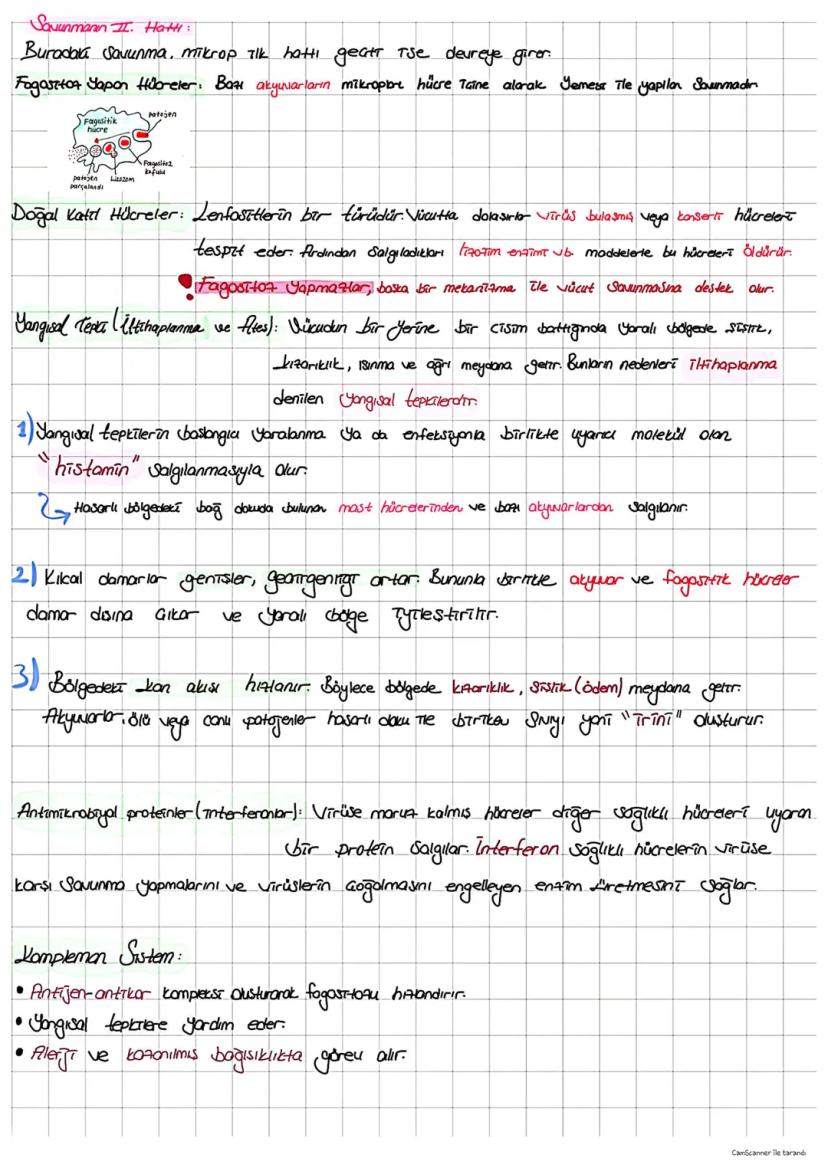 Savunmanın II. Hattı:
Buradaki savunma, mikrop ilk hattı geçti ise devreye girer.
Fagositoz Yapan Hücreler: Bazı akyuvarların mikropları hücre içine alarak yemesi ile yapılan savunmadır.
Fagositik hücre
patojen
Fagositoz kofulu
Lizozom
patojen parçalandı
Doğal Katil Hücreler: Lenfositlerin bir türüdür. Vücutta dolaşırlar virüs bulaşmış veya kanserli hücreleri
tespit eder. Ardından salgıladıkları lizozim enzimi vb. maddelerle bu hücreleri öldürür.
! Fagositoz yapmazlar, başka bir mekanizma ile vücut savunmasına destek olur.
Yangısal Tepki (İltihaplanma ve Ateş): Vücudun bir yerine bir cisim battığında yaralı bölgede şişlik,
kızarıklık, ısınma ve ağrı meydana gelir. Bunların nedenleri iltihaplanma
denilen yangısal tepkilerdir.
1) Yangısal tepkilerin başlangıcı yaralanma ya da enfeksiyonla birlikte uyarıcı molekül olan
"histamin" salgılanmasıyla olur.
Hasarlı bölgedeki bağ dokuda bulunan mast hücrelerinden ve bazı akyuvarlardan salgılanır.
2) Kılcal damarlar genişler, geçirgenliği artar. Bununla birlikte akyuvar ve fagositik hücreler
damar dışına çıkar ve yaralı bölge iyileştirilir.
3) Bölgedeki kan akışı hızlanır. Böylece bölgede kızarıklık, şişlik (ödem) meydana gelir.
Akyuvarlar, ölü veya canlı patojenler hasarlı doku ile biriken sıvıyı yani "irini" oluşturur.
Antimikrobiyal proteinler (İnterferonlar): Virüse maruz kalmış hücreler diğer sağlıklı hücreleri uyaran
bir protein salgılar. İnterferon sağlıklı hücrelerin virüse
karşı savunma yapmalarını ve virüslerin çoğalmasını engelleyen enzim üretmesini sağlar.
Kompleman Sistem:
• Antijen-antikor kompleksi oluşturarak fagositozu hızlandırır.
• Yangısal tepkilere yardım eder.
• Alerji ve kazanılmış bağışıklıkta görev alır.
CamScanner ile tarandı